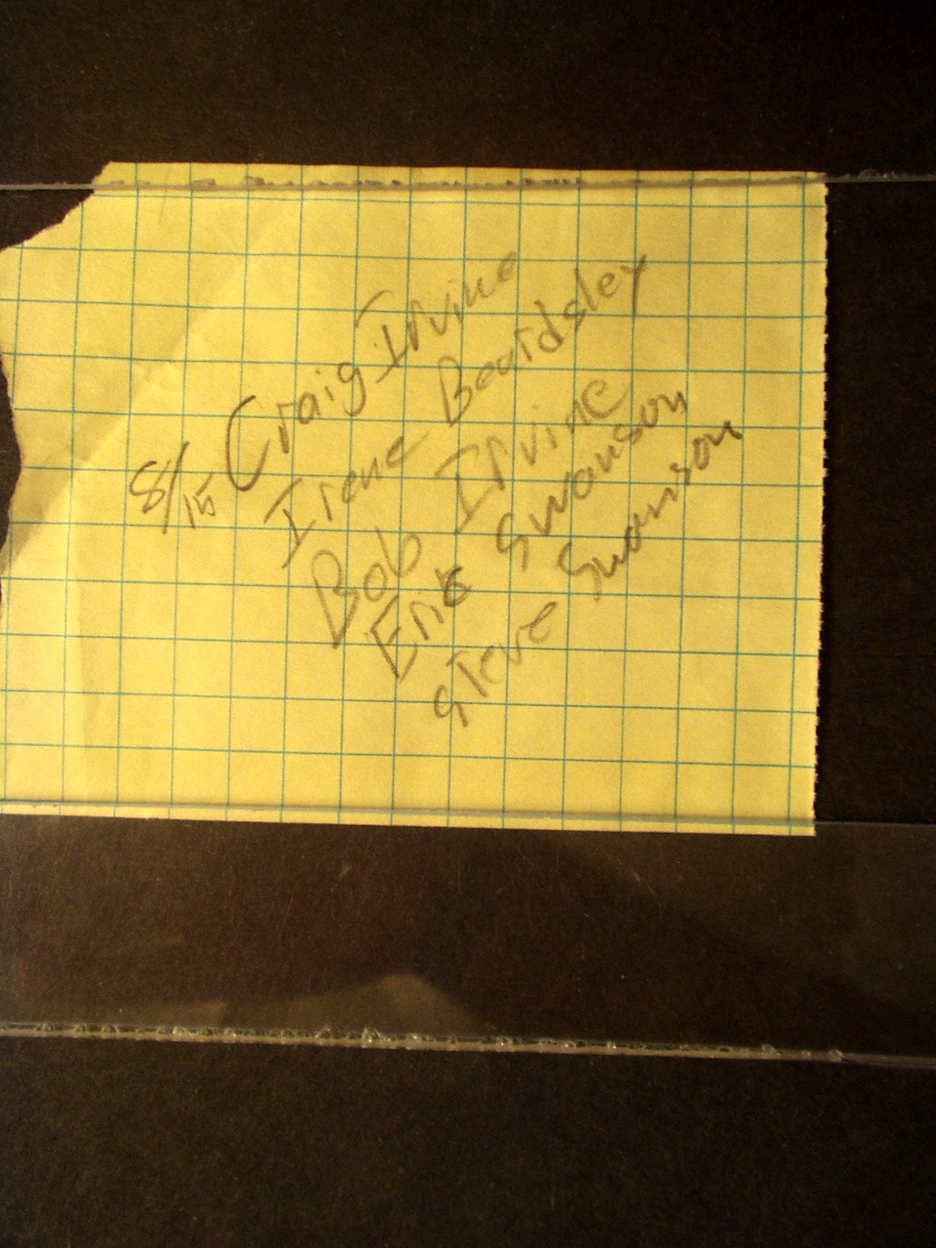 8/15 Craig Irvine
Irene Beardsley
Bob Irvine
Eric Swanson
Steve Swanson